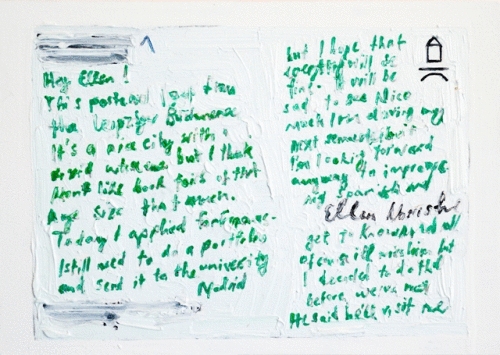 Hey Ellen!
This postcard I got from
the Leipziger Buchmesse
It's a nice city with
but I think
don't like book fairs of that
huge size that much.
Today I applied for
I still need to do a portfolio
and send it to the university
Madrid
but I hope that
everything will be
fine. I will be
sad to see Nico
much from during my
next semester but
I'm looking forward
anyway to improve
my spanish and
Ellen
get to know
of course I'll miss him but
I decided to do that
before we've met
He said he'll visit me